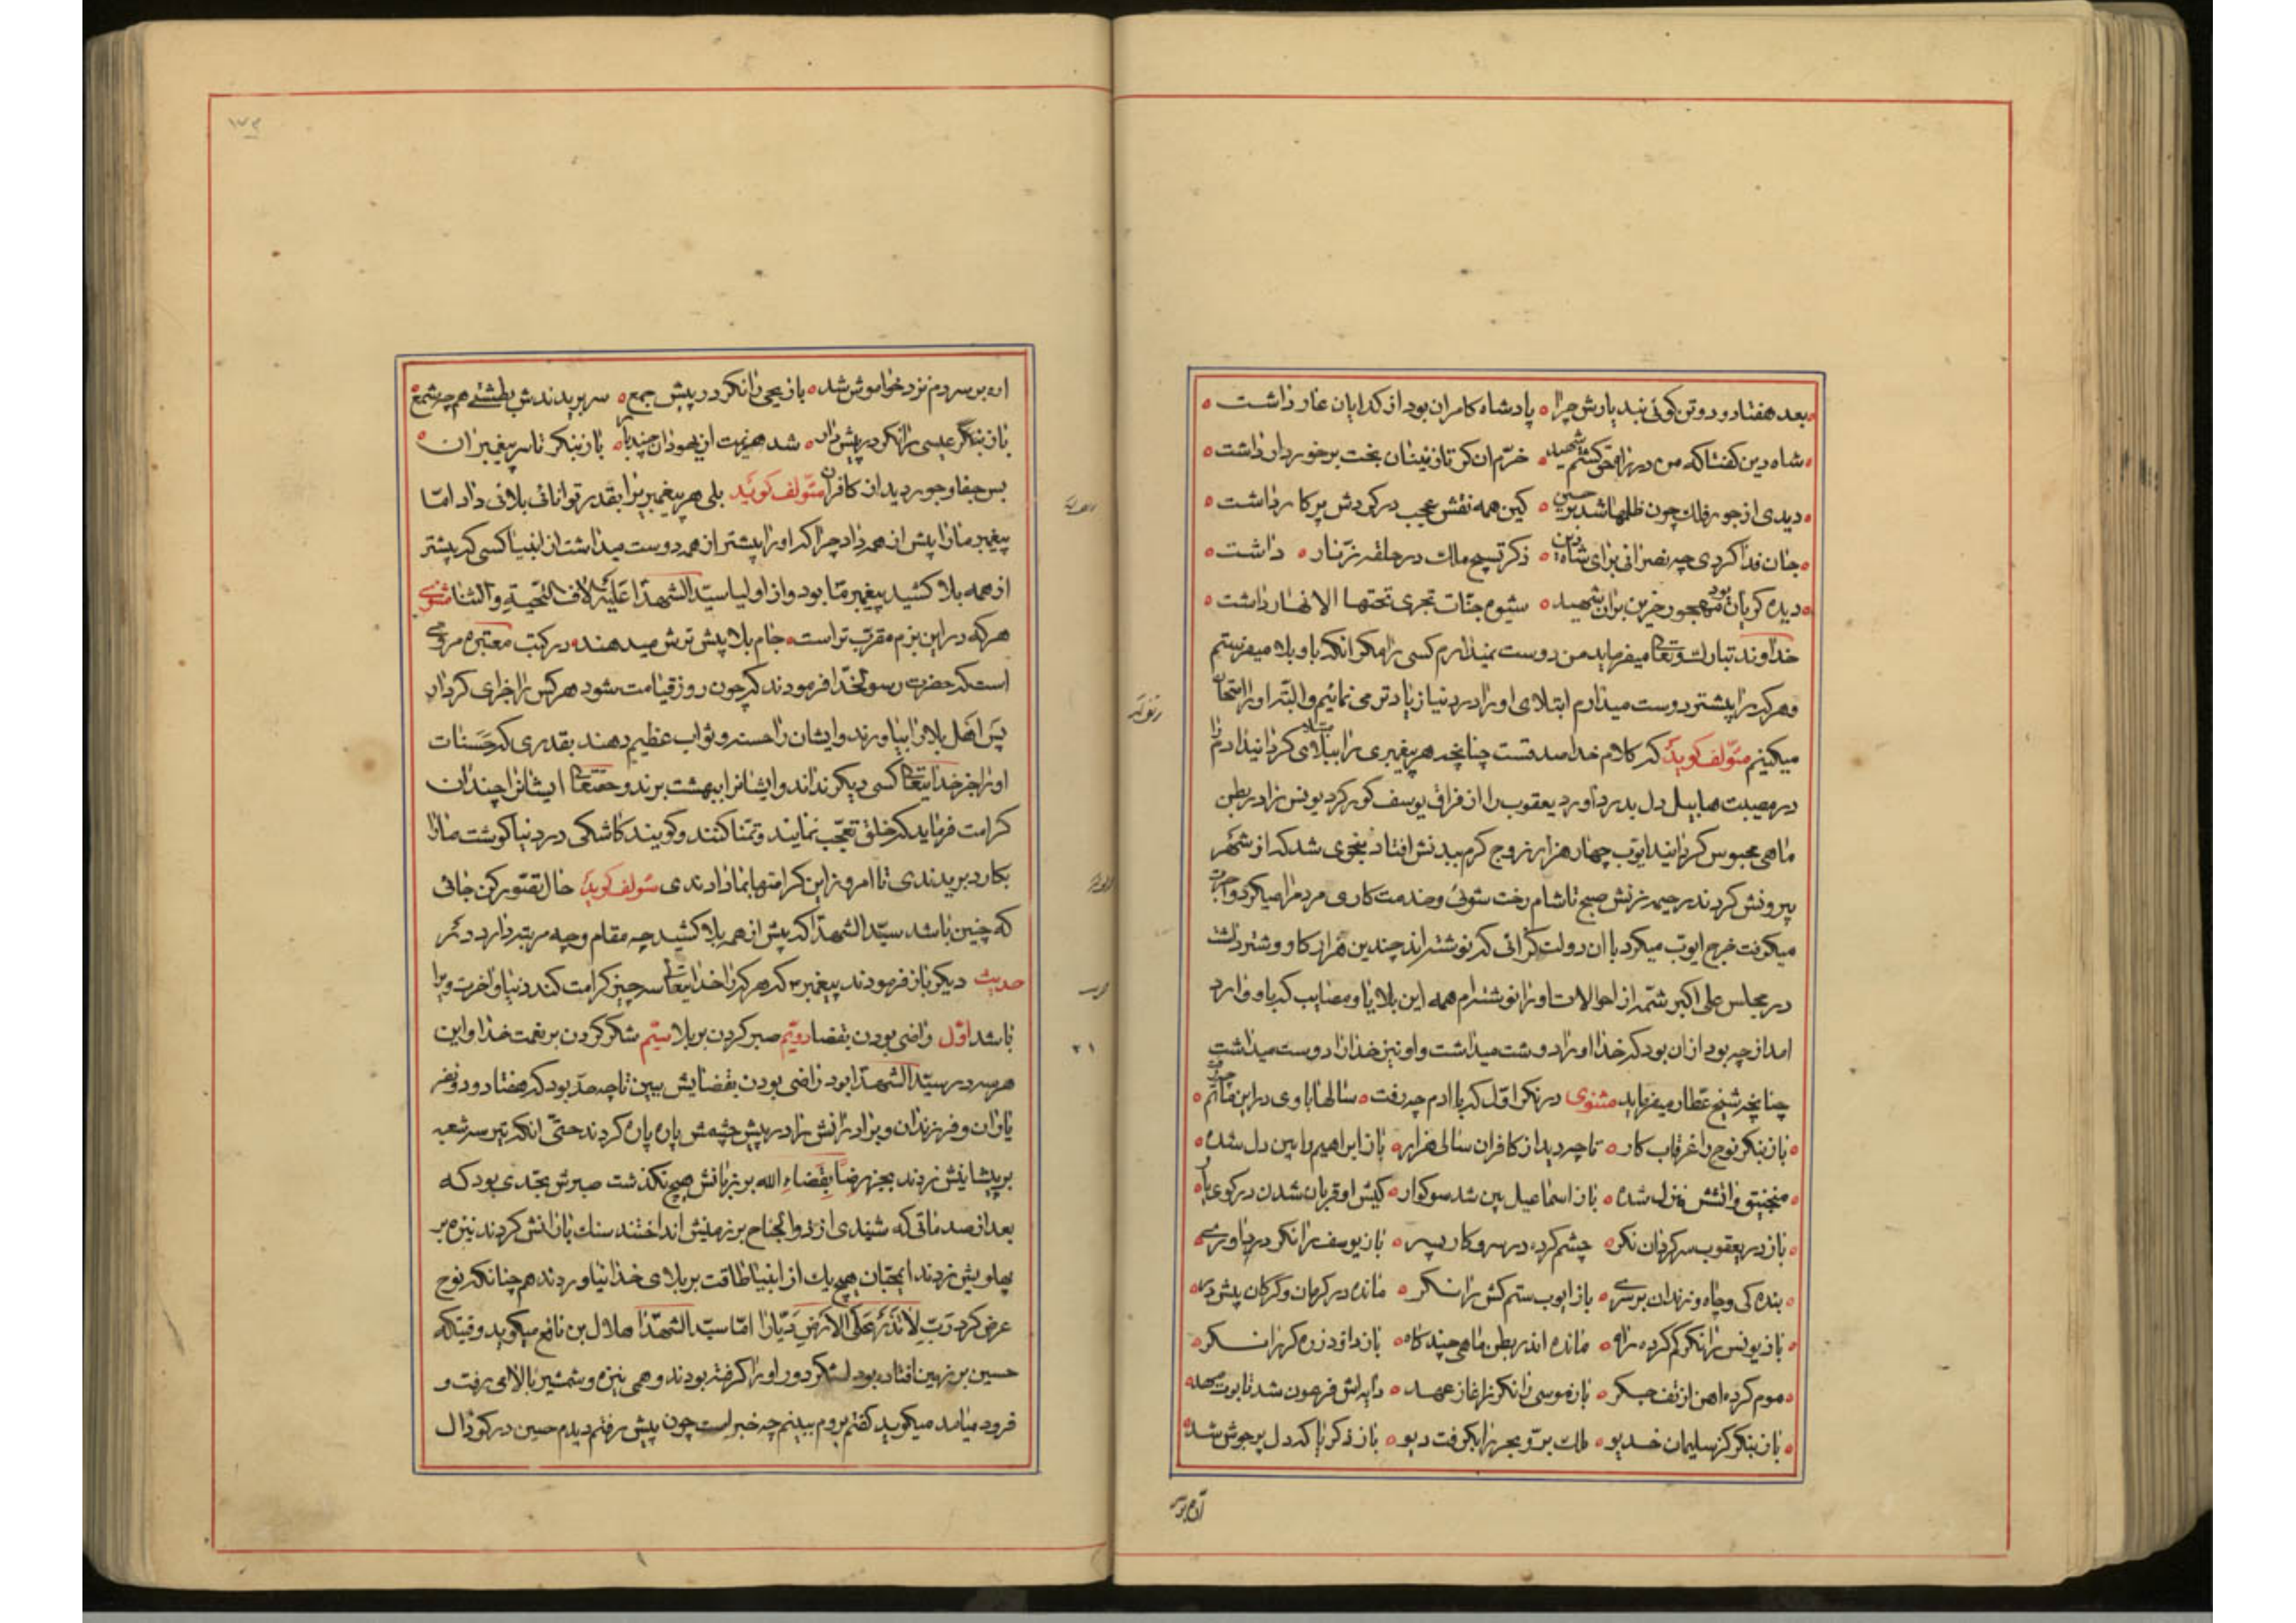 بعد هفتاد و دو تن کوئی نبد یارش چرا ٥ پادشاه کامران بود از کدایان عار داشت ٥
شاه دین کفتا که من در راه حق کشتم شهید ٥ خرّم ان کز نازنینان بخت برخوردار داشت ٥
دیدی از جور فلك چون ظلمها شد بر حسین ٥ کین همه نقش عجب در کردش پرکار داشت ٥
جان فدا کردی چه نصرانی برای شاه دین ٥ ذکر تسبیح ملك در حلقه زنّار ٥ داشت ٥
دیده کریان بود مهجور حزین بران شهید ٥ شیوه جنّات تجری تحتها الانهار داشت ٥
خداوند تبارك و تعالی میفرماید من دوست نمیدارم کسی را مکر انکه باو بلا میفرستم
و هر که را بیشتر دوست میدارم ابتلای او را در دنیا زیادتر می نمائیم و البته او را امتحان
میکینم مؤلف کوید که کلام خدا صدقست چنانچه هر پیغمبری را ببلای مبتلا کردانید ادم را
در مصیبت هابیل دل بدرد اورد یعقوب را از فراق یوسف کور کرد یونس را در بطن
ماهی محبوس کردانید ایوب چهار هزار زوج کرم ببدنش افتاد بنحوی شد که از شهر
بیرونش کردند رحیمه زنش صبح تا شام رخت شوئی و خدمت کاری مردم را میکرد و اجرت
میکرفت خرج ایوب میکرد با ان دولت کرانی که نوشته اند چندین هزار کاو و شتر داشت
در مجلس علی اکبر شمّه از احوالات او را نوشته ام همه این بلایا و مصایب که باو وارد
امد از چه بود از ان بود که خدا او را دوست میداشت و او نیز خدا را دوست میداشت
چنانچه شیخ عطار میفرماید مثنوی در نکر اول که با ادم چه رفت ٥ سالها با وی در این ماتم چه رفت ٥
باز بنکر نوح را غرقاب کار ٥ تا چه دید از کافران سالی هزار ٥ باز ابراهیم را بین دل شده ٥
منجنیق و اتشش منزل شده ٥ باز اسماعیل بین شد سوکوار ٥ کبش او قربان شدن در کوی یار ٥
باز در یعقوب سرکردان نکر ٥ چشم کرده در سر و کار پسر ٥ باز یوسف را نکر در داوری ٥
بندکی و چاه و زندان بر سری ٥ باز ایوب ستم کش را نکر ٥ مانده در کرمان و کرکان پیش در ٥
باز یونس را نکر کم کرده راه ٥ مانده اندر بطن ماهی چند کاه ٥ باز داود زره کر را نکر ٥
موم کرده اهن از تف جکر ٥ باز موسی را نکر ز اغاز عهد ٥ دایه اش فرعون شد تابوت مهد ٥
باز بنکر کز سلیمان خدیو ٥ ملك بر و بحر را بکرفت دیو ٥ باز زکریا که دل پر جوش شد ٥
اره بر سر
١٧٣
اره بر سر دم نزد خاموش شد ٥ باز یحیی را نکر در پیش جمع ٥ سر بریدندش بطشتی هم چه شمع ٥
باز بنکر عیسی را نکر در پیش دار ٥ شد هزیمت از یهودان چند بار ٥ باز بنکر تا سر پیغمبران ٥
بس جفا و جور دید از کافران مؤلف کوید بلی هر پیغمبریرا بقدر توانائی بلائی داد امّا
پیغمبر ما را بیش از همه داد چرا که او را بیشتر از همه دوست میداشت از انبیا کسی که بیشتر
از همه بلا کشید پیغمبر ما بود و از اولیا سید الشهدا علیه الاف التحیة و الثنا مثنوی
هر که در این بزم مقرّب تر است ٥ جام بلا بیش ترش میدهند ٥ در کتب معتبره مروی
است که حضرت رسول خدا فرمودند که چون روز قیامت شود هر کس را جزای کردار
پس اهل بلا را بیاورند و ایشان را حسنه و ثواب عظیم دهند بقدری که حسنات
او را جز خدایتعالی کسی دیکر نداند و ایشانرا ببهشت برند و حقتعالی ایشانرا چندان
کرامت فرماید که خلق تعجّب نمایند و تمنّا کنند و کویند کاشکی در دنیا کوشت ما را
بکارد بریدندی تا امروز این کرامتها بما دادندی مؤلف کوید حال تصّور کن جائی
که چنین باشد سید الشهدا که بیش از همه بلا کشید چه مقام و چه مرتبه دارد دکر
حدیث دیکر باز فرمودند پیغمبر ص که هر که را خدایتعالی سه چیز کرامت کند دنیا و اخرت ویرا
باشد اوّل راضی بودن بقضا دویّم صبر کردن بر بلا سیّم شکر کردن بر نعمت خدا و این
هر سه در سید الشهدا بود راضی بودن بقضایش ببین تا چه حدّ بود که هفتاد و دو نفر
یاوران و فرزندان و برادرانش را در پیش چشمش پاره پاره کردند حتّی انکه تیر سه شعبه
بر پیشانیش زدند بجز رضاً بقضاءِ الله بر زبانش هیچ نکذشت صبرش بحّدی بود که
بعد از صدماتی که شنیدی از ذوالجناح بر زمینش انداختند سنك بارانش کردند نیزه بر
پهلویش زدند ایمحبّان هیچ یك از انبیا طاقت بر بلای خدا نیاوردند هم چنانکه نوح
عرض کرد رَبِّ لا تَذَر عَلَی الاَرضِ دَیّاراً امّا سید الشهدا هلال بن نافع میکوید وقتیکه
حسین بر زمین افتاده بود لشکر دور او را کرفته بودند و همی نیزه و شمشیر بالا می رفت و
فرود میامد میکوید کفتم بروم ببینم چه خبر است چون پیش رفتم دیدم حسین در کودال